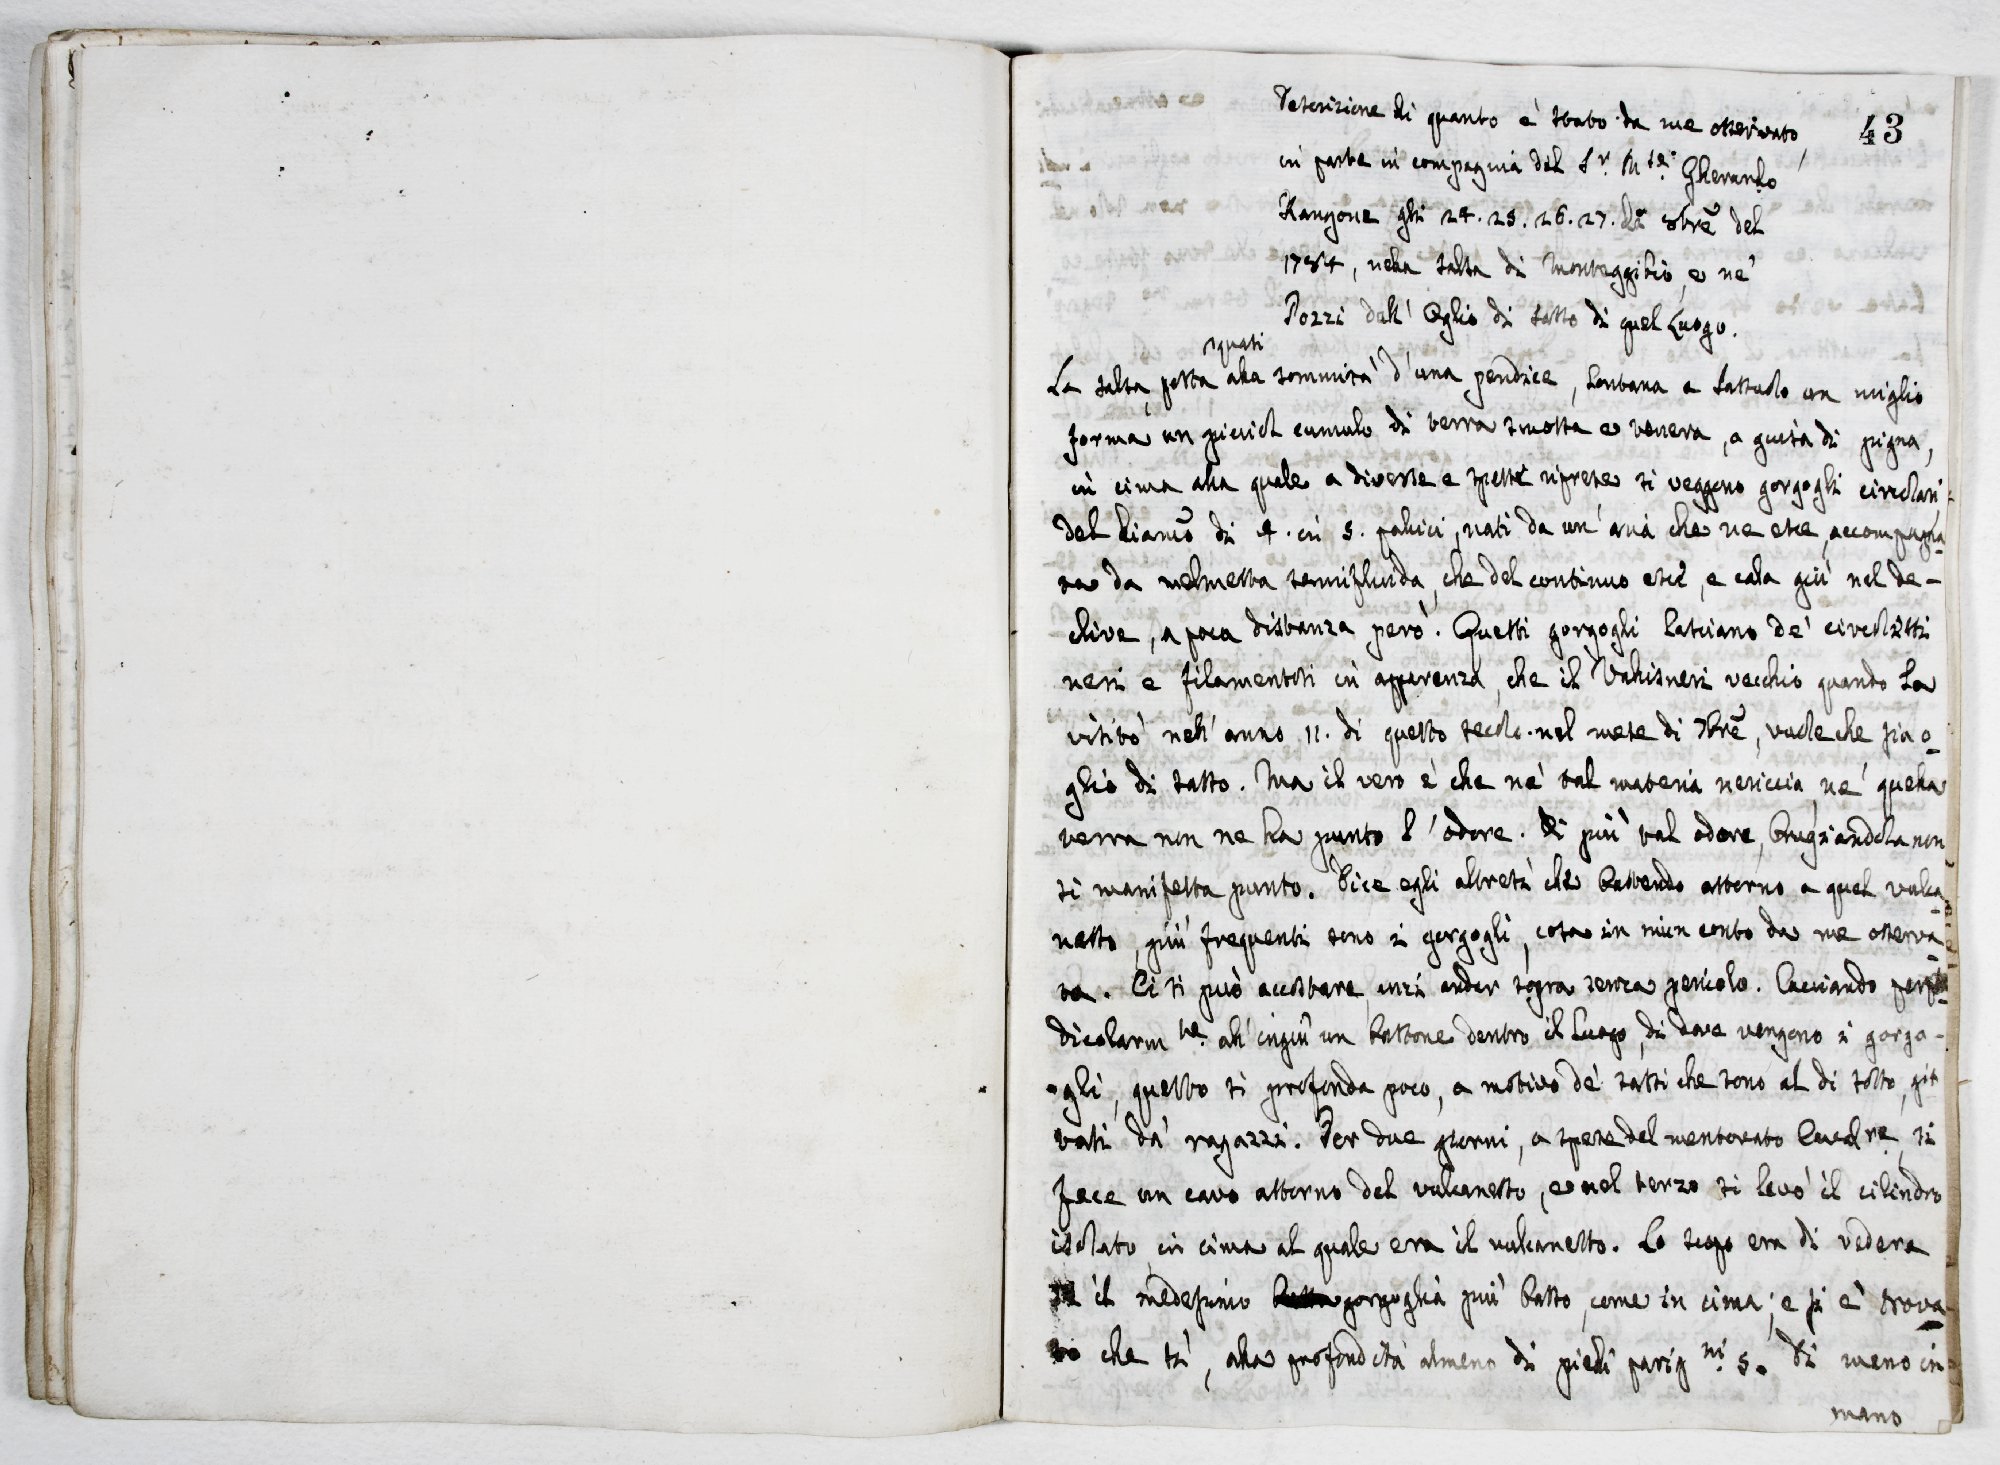 43
Descrizione di quanto è stato da me osservato,
in parte in compagnia del S.r M.se Gherardo
Rangone gli 24. 25. 26. 27. di 8bre del
1784, nella salsa di Monteggibio, e ne'
Pozzi dell' Oglio di sasso di quel Luogo.
quasi
La salsa, posta alla sommità d'una pendice, lontana a Sassuolo un miglio
forma un picciol cumulo di terra smossa e tenera, a guisa di pigna,
in cima alla quale a diverse e spesse riprese si veggono gorgogli circolari,
del diamo di 4. in 5. pollici, nati da un' aria che ne esce, accompagna-
ta da melmetta semifluida, che del continuo esce, e cala giù nel de-
clive, a poca distanza però. Questi gorgogli lasciano de' circoletti
neri e filamentosi in apparenza, che il Vallisneri vecchio quando la
visitò nell' anno 11. di questo secolo nel mese di 7bre, vuole che sia o-
glio di sasso. Ma il vero è che nè tal materia nericcia, nè quella
terra non ne ha punto l'odore. Di più tal odore, brugiandola non
si manifesta punto. Dice egli altresì che battendo attorno a quel vulca-
netto, più frequenti sono i gorgogli, cosa in niun conto da me osserva-
ta. Ci si può accostare, anzi andar sopra senza pericolo. Cacciando perpen-
dicolarm.te all' ingiù un bastone dentro il luogo, di dove vengono i gorgo-
gli, questo si profonda poco, a motivo de' sassi che sono al di sotto, git-
tati da' ragazzi. Per due giorni, a spese del mentovato Caval.re, si
fece un cavo attorno del vulcanetto, e nel terzo si levò il cilindro
isolato, in cima al quale era il vulcanetto. Lo scopo era di vedere
se il medesimo gorgoglia più basso, come in cima; e si è trova-
to che sì, alla profondità almeno di piedi parig.ni 5. Di meno in
mano